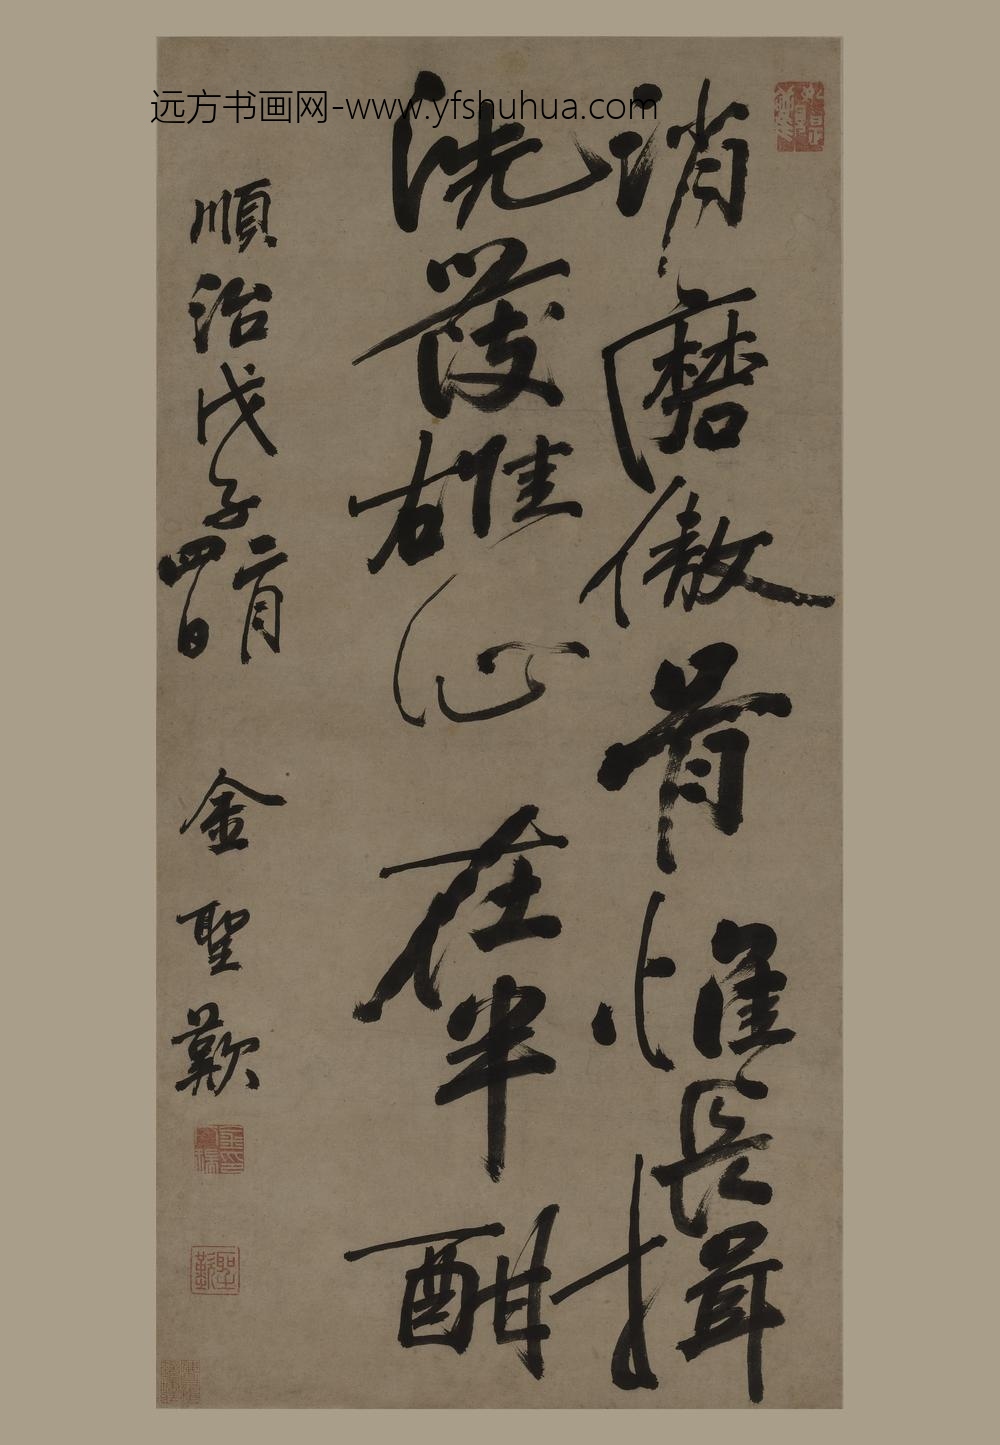 远方书画网-www.yfshuhua.com
消磨傲骨惟長揖
洗發雄心在半酣
順治戊子二月
四日
金聖歎
聖歎